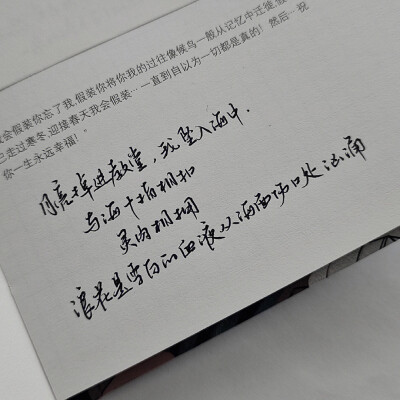 会假装你忘了我,假装你将你我的过往像候鸟一般从记忆中迁徙,
已走过寒冬,迎接春天我会假装… 一直到自以为一切都是真的!然后… 祝
你一生永远幸福!”
月亮掉进教堂,我坠入海中.
与海十指相扣
灵肉相拥
浪花是雪白的血液从海面伤口处汹涌